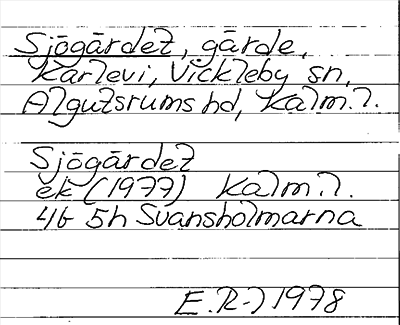 Sjögärdet, gärde,
Karlevi, Vickleby sn,
Algutsrums hd, Kalm.l.
Sjögärdet
ek (1977) Kalm.l.
4G 5h Svansholmarna
E.R-) 1978